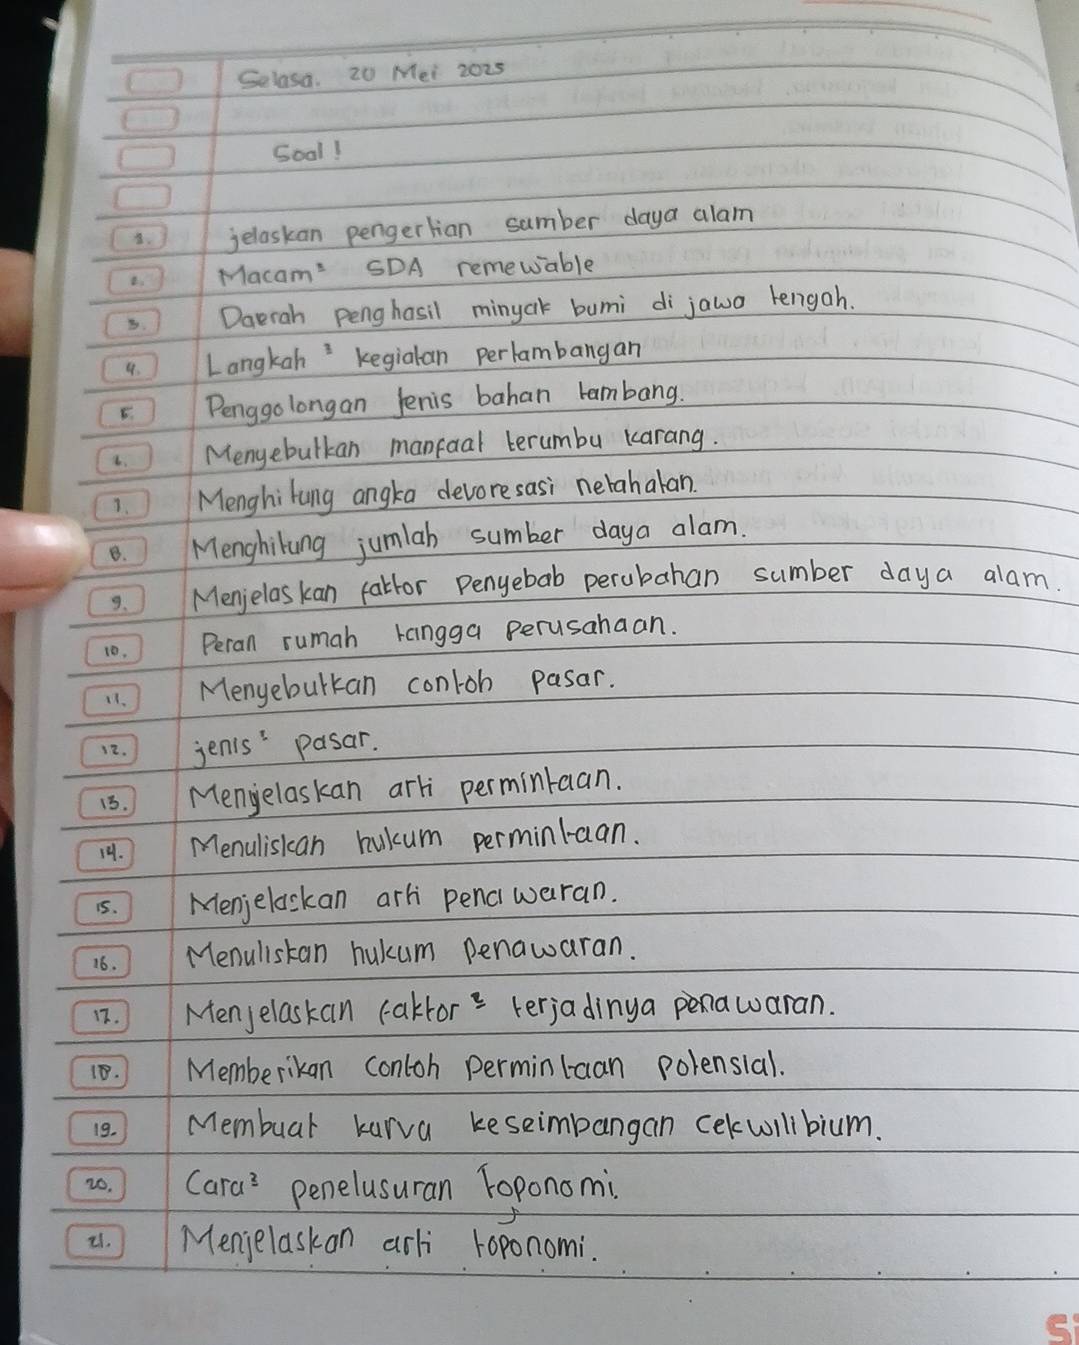 Selasa. 20 Mei 2025
Soal!
1. jelaskan pengertian sumber daya alam
2. Macam² SDA remewable
3. Daerah penghasil minyak bumi di jawa tengah.
4. Langkah² kegiatan pertambangan
5. Penggolongan jenis bahan tambang.
6. Menyebutkan manfaat terumbu karang.
7. Menghitung angka devoresasi netahatan.
8. Menghitung jumlah sumber daya alam.
9. Menjelaskan faktor penyebab perubahan sumber daya alam.
10. Peran rumah tangga perusahaan.
11. Menyebutkan contoh pasar.
12. jenis² pasar.
13. Menjelaskan arti permintaan.
14. Menuliskan hukum permintaan.
15. Menjelaskan arti penawaran.
16. Menuliskan hukum penawaran.
17. Menjelaskan faktor² terjadinya penawaran.
18. Memberikan contoh permintaan potensial.
19. Membuat kurva keseimbangan cekwilibium.
20. Cara² penelusuran toponomi.
21. Menjelaskan arti toponomi.
Si